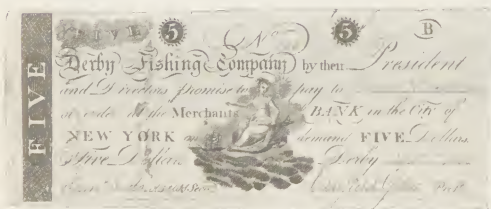 FIVE
FIVE 5 No 5 B
Derby Fishing Company by their President
and Directors promise to pay to
or order at the Merchants BANK in the City of
NEW YORK on demand FIVE Dollars
Five Dollars Derby